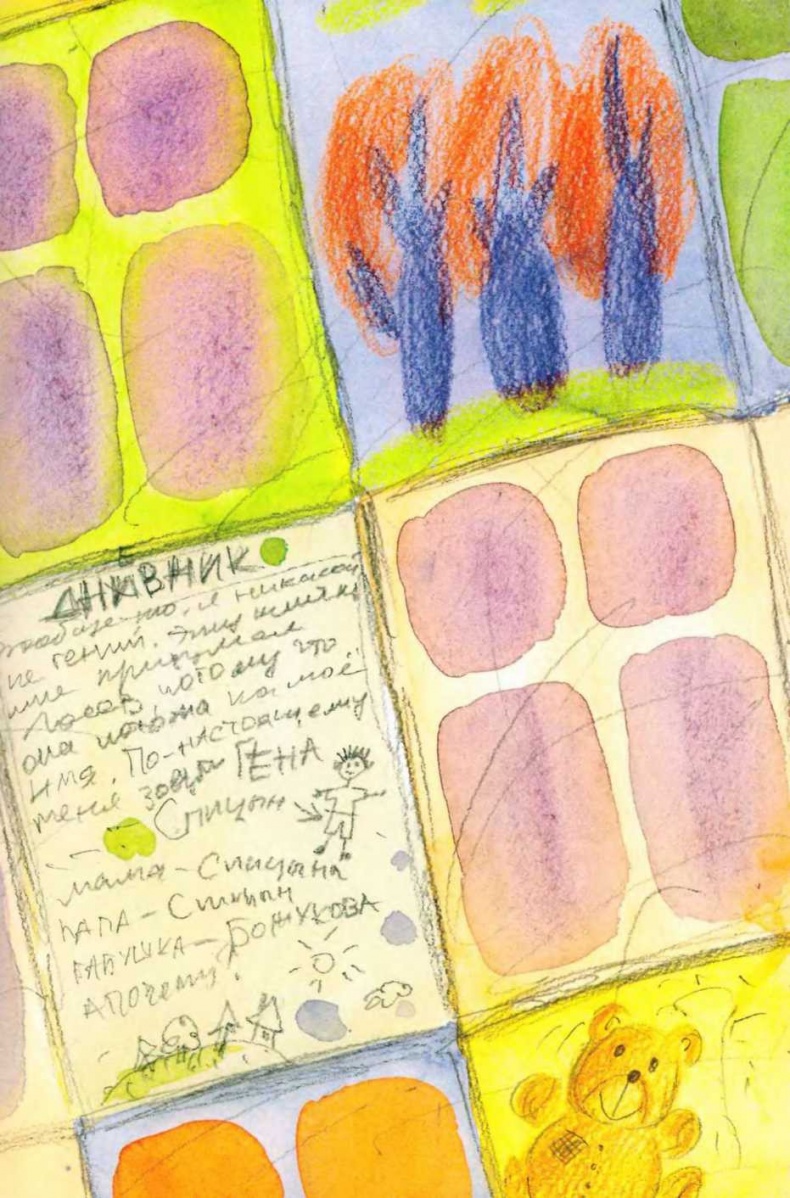 ДНЕВНИК
Вообще-то, я никакой
не гений. Эту кличку
мне придумал
Лосев, потому что
она похожа на моё
имя. По-настоящему
меня зовут ГЕНА
Спицын
мама – Спицына
ПАПА – Спицын
БАБУШКА – БОЖУКОВА
А ПОЧЕМУ?